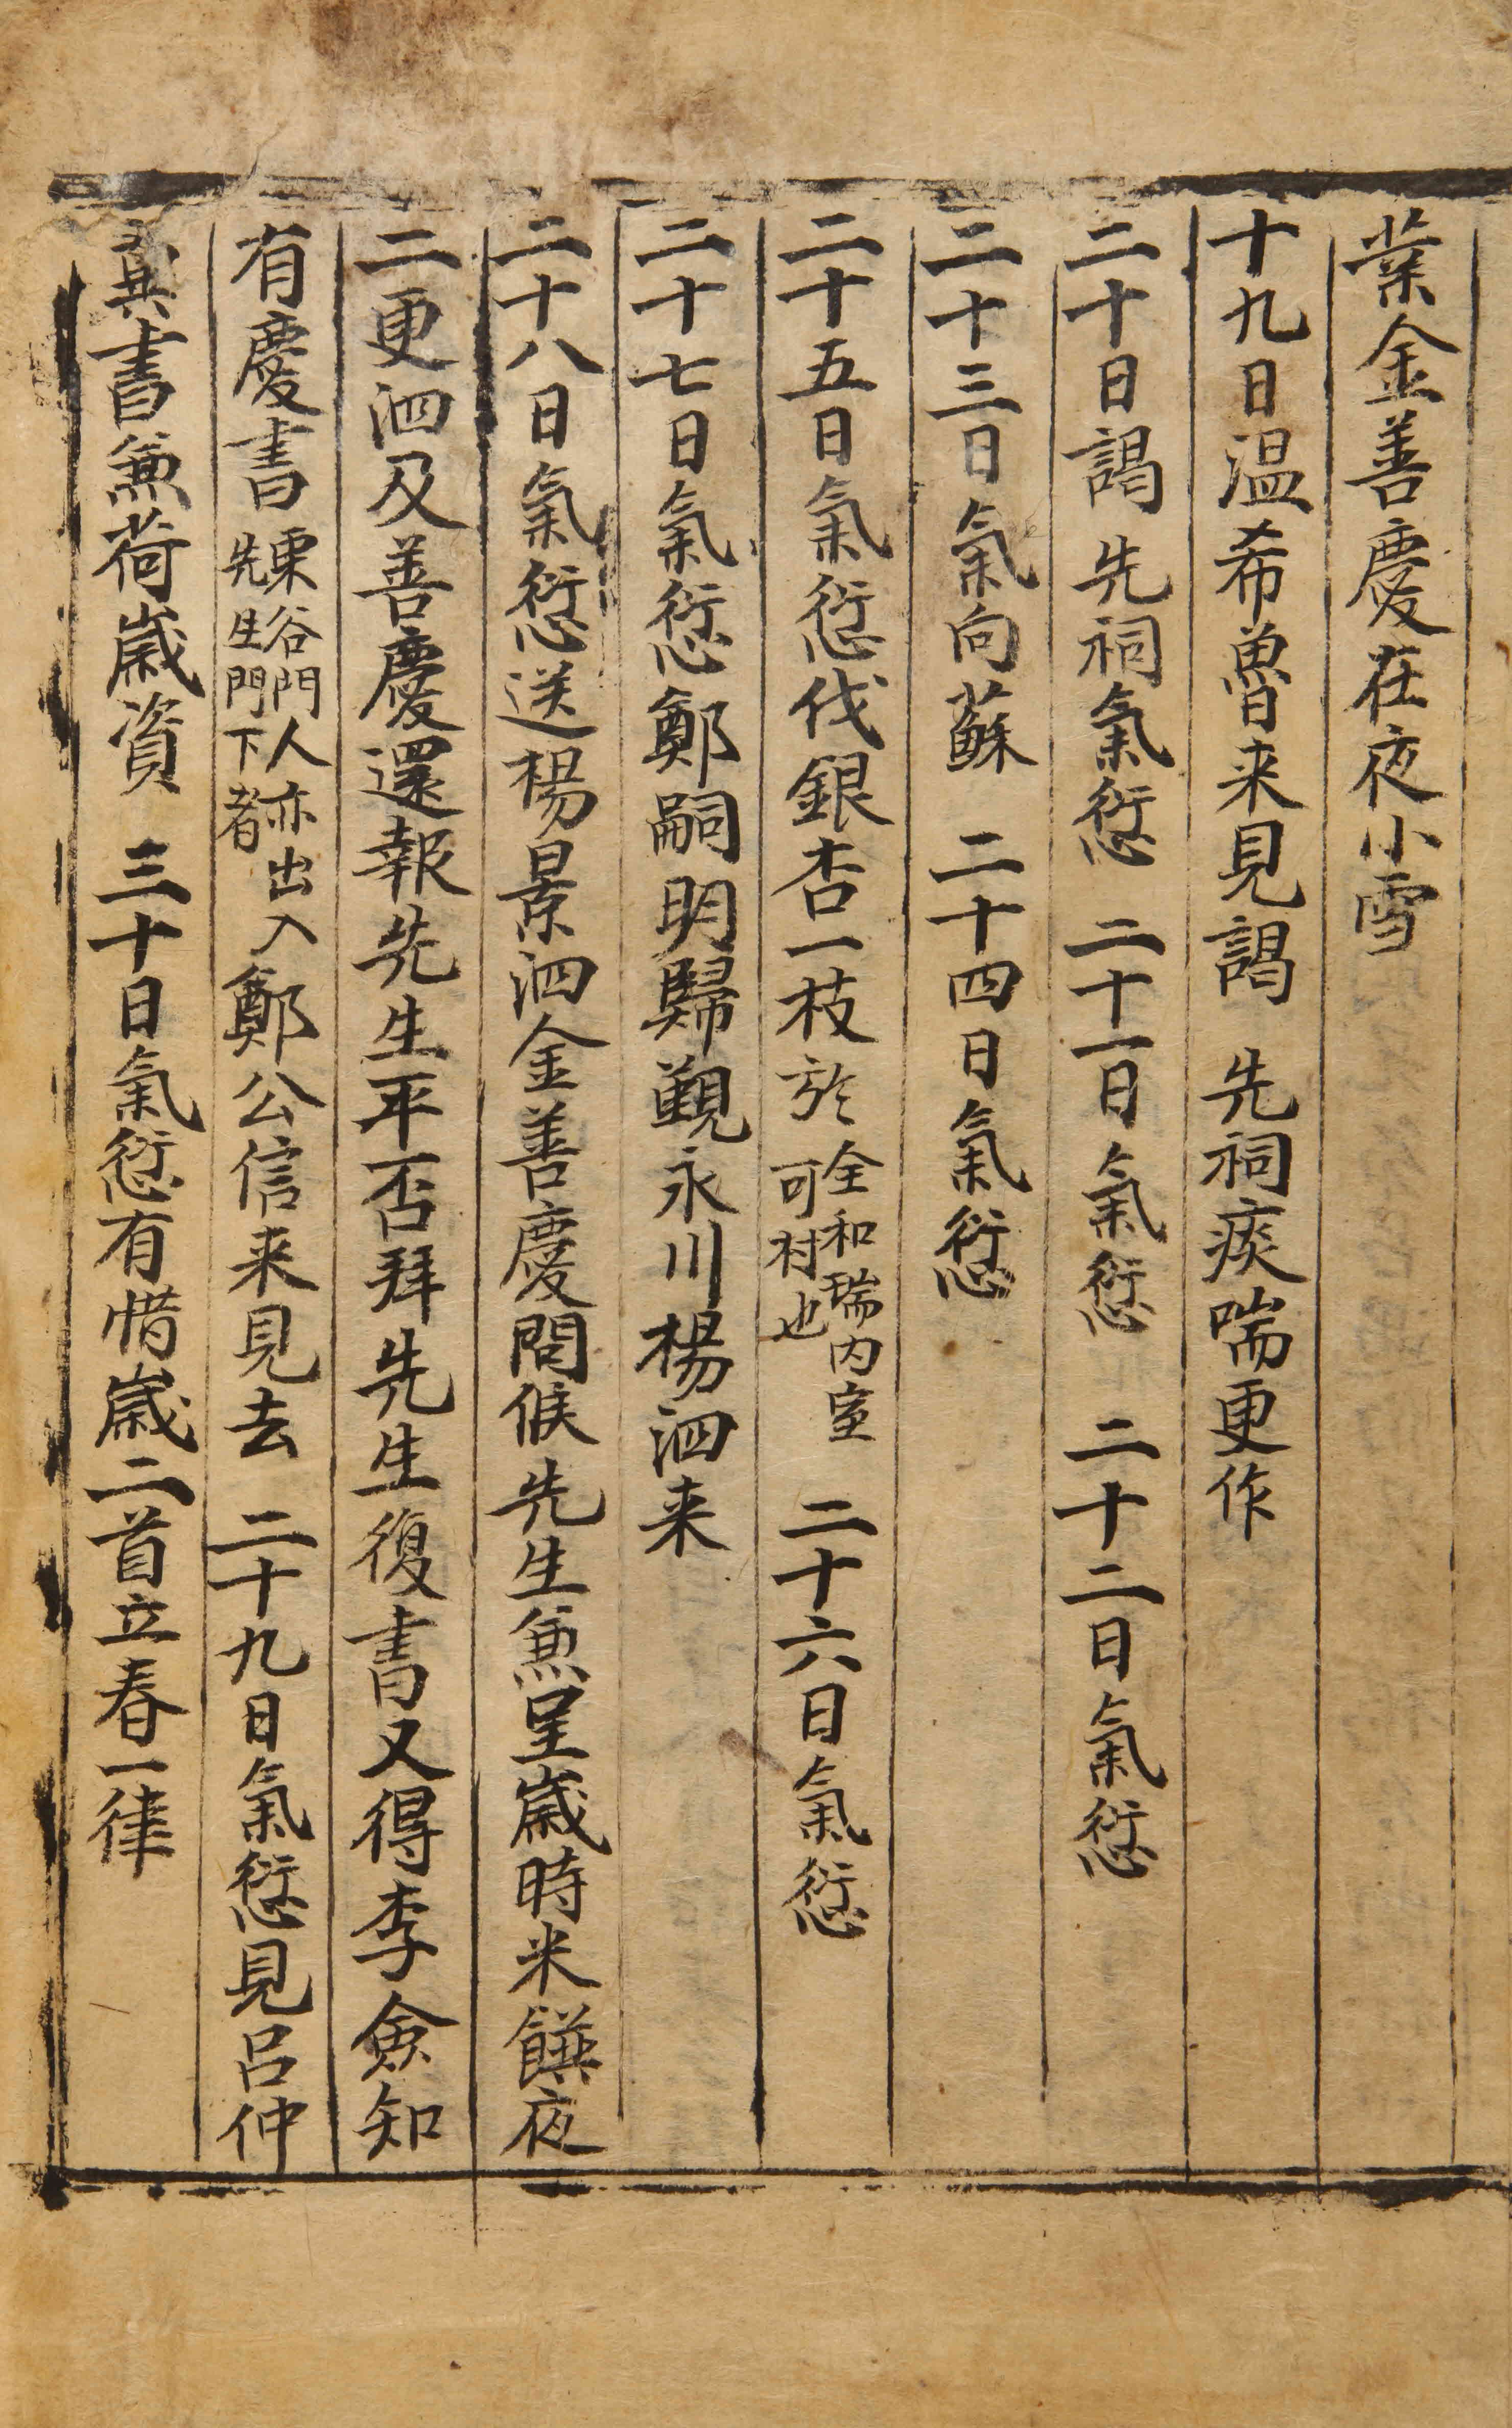 業金善慶在夜小雪
十九日温希魯来見謁 先祠痰喘更作
二十日謁 先祠氣愆 二十一日氣愆 二十二日氣愆
二十三日氣向蘇 二十四日氣愆
二十五日氣愆伐銀杏一枝於全和瑞内室可対也 二十六日氣愆
二十七日氣愆鄭嗣明歸覲永川楊泗来
二十八日氣愆送楊景泗金善慶問候 先生兼呈歲時米饌夜
二更泗及善慶還報先生平否拜先生復書又得李僉知
有慶書栗谷門人亦出入先生門下者鄭公信来見去 二十九日氣愆見呂仲
兾書兼荷歲資 三十日氣愆有惜歲二首立春一律